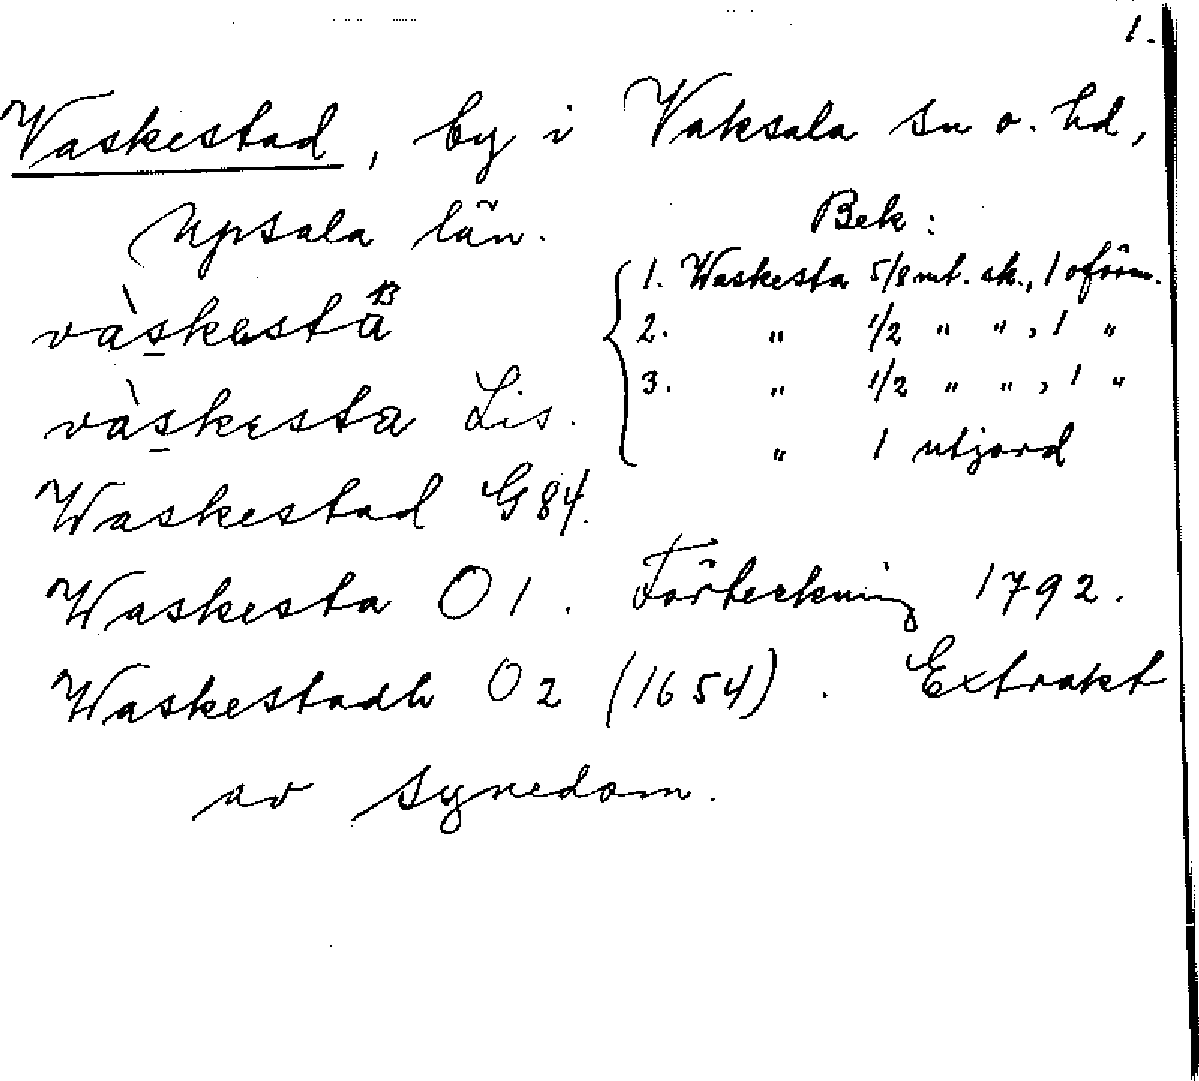 1.
Vaskestad, by i Vaksala sn o. hd,
Upsala län.
Bek:
1. Waskesta 5/8 mt. sk., 1 oförm.
2. " 1/2 " ", 1 "
3. " 1/2 " ", 1 "
" 1 utjord
vàskesta
vàskesta Lis.
Waskestad G 84.
Waskesta O 1. Förteckning 1792.
Waskestadh O 2 (1654). Extrakt
av synedom.